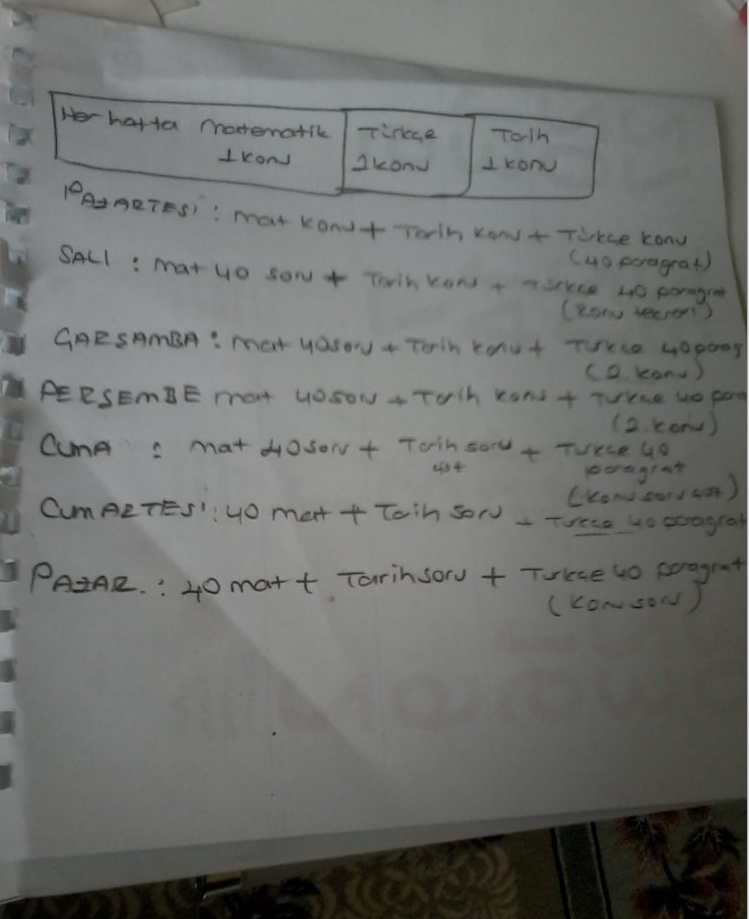 Her hafta matematik Türkçe Tarih
1 konu 2 konu 1 konu
PAZARTESİ : mat konu + Tarih konu + Türkçe konu
(40 paragraf)
SALI : mat 40 soru + Tarih konu + Türkçe 40 paragraf
(konu tekrarı)
ÇARŞAMBA : mat 40 soru + Tarih konu + Türkçe 40 parag
(2. konu)
PERŞEMBE mat 40 soru + Tarih konu + Türkçe 40 para
(2. konu)
CUMA : mat 40 soru + Tarih soru + Türkçe 40
paragraf
(konu soru
CUMARTESİ : 40 mat + Tarih soru + Türkçe 40 paragraf
PAZAR. : 40 mat + Tarih soru + Türkçe 40 paragraf
(konu soru)